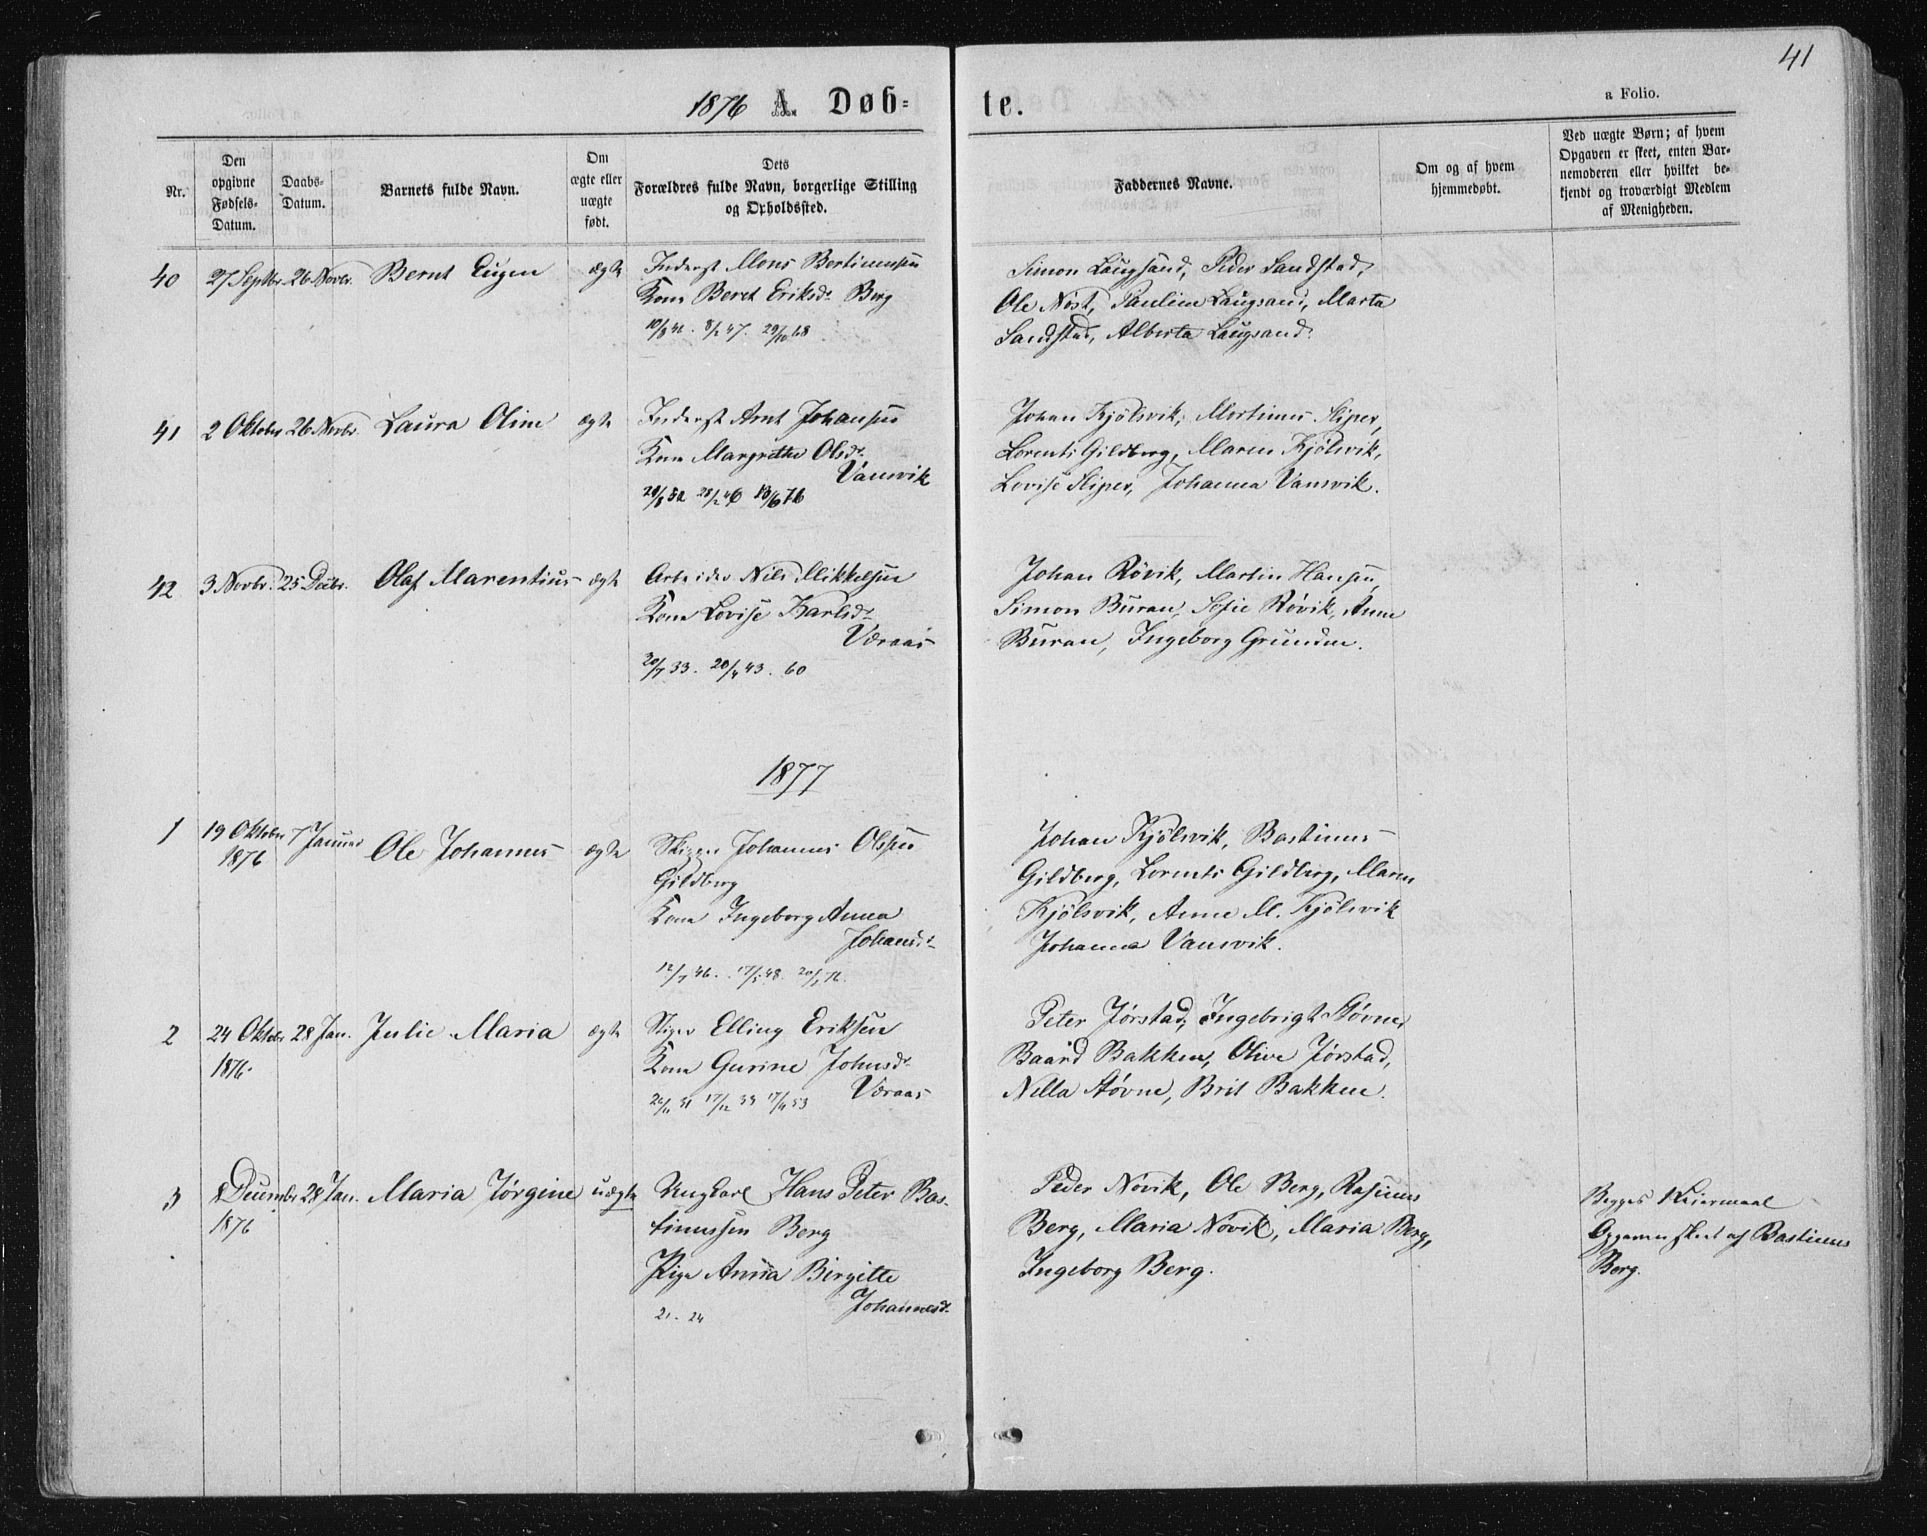 41
1876 A. Døb-
te.
a Folio.
Nr.
Den
opgivne
Fødsels-
Datum.
Daabs-
Datum.
Barnets fulde Navn.
Om
ægte eller
uægte
født.
Dets
Forældres fulde Navn, borgerlige Stilling
og Opholdssted.
Faddernes Navne.
Om og af hvem
hjemmedøbt.
Ved uægte Børn; af hvem
Opgaven er skeet, enten Bar-
nemoderen eller hvilket be-
kjendt og troværdigt Medlem
af Menigheden.
40 27 Septbr. 26 Novbr. Bernt Eugen ægte
Inderst Mons Bertinussen
Kone Beret Eriksdr Berg
Simon Laugsand, Peder Sandstad,
Ole Nöst, Pauline Laugsand, Marta
Sandstad, Alberta Laugsand.
41 2 Oktober 26 Novbr. Laura Oline ægte
Inderst Arnt Johansen
Kone Margrethe Olsdr
Vansvik
Johan Kjölsvik, Mortinus Sliper,
Lorents Gildberg, Maren Kjölsvik,
Lovise Sliper, Johanna Vansvik.
42 3 Novbr. 25 Decbr. Olaf Marentius ægte
Arbeider Nils Mikkelsen
Kone Lovise Karlsdr
Væraas
20/7 33. 20/4 43. 60
Johan Rövik, Martin Hansen,
Simon Buran, Sofie Rövik, Anne
Buran, Ingeborg Grunden.
1877
1 19 Oktober 7 Januar Ole Johannes ægte
1876
Johannes Olsen
Gildberg
Kone Ingeborg Anna
Johansdr
Johan Kjölsvik, Bastinus
Gildberg, Lorents Gildberg, Maren
Kjölsvik, Anne M. Kjölsvik
Johanna Vansvik.
2 24 Oktobr 28 Jan. Julie Maria ægte
1876.
Elling Eriksen
Kone Gurine Johnsdr
Væraas
Peter Jörstad, Ingebrigt Stövne,
Baard Bakken, Olive Jörstad,
Nella Stövne, Brit Bakken.
3 8 Decembr 28 Jan. Maria Jörgine uægte
1876
Ungkarl Hans Peter Bas-
tinussen Berg
Pige Anna Birgitte
Johannesd.
21. 24
Peder Növik, Ole Berg, Rasmus
Berg, Maria Növik, Maria Berg,
Ingeborg Berg.
Begges Leiermaal
Opgaven skeet af Bastinus
Berg.